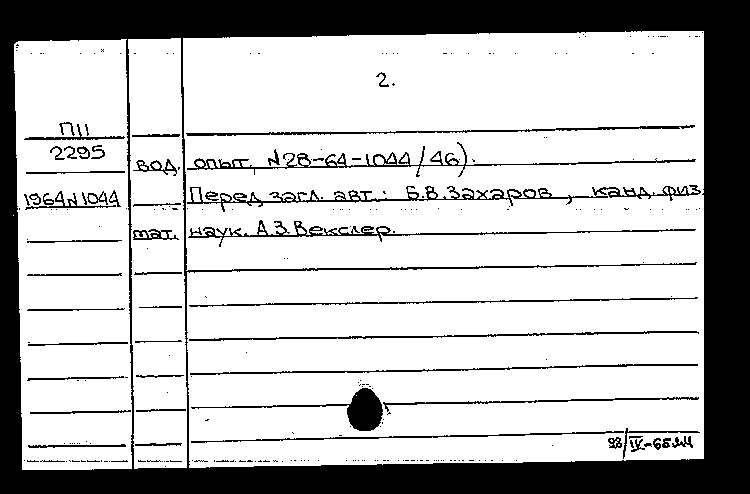 2.
П11
2295
вод. опыт, N28-64-1044/46).
1964N1044 Перед загл. авт.: Б.В.Захаров, канд. физ.
мат. наук. А.З.Векслер.
IV-65